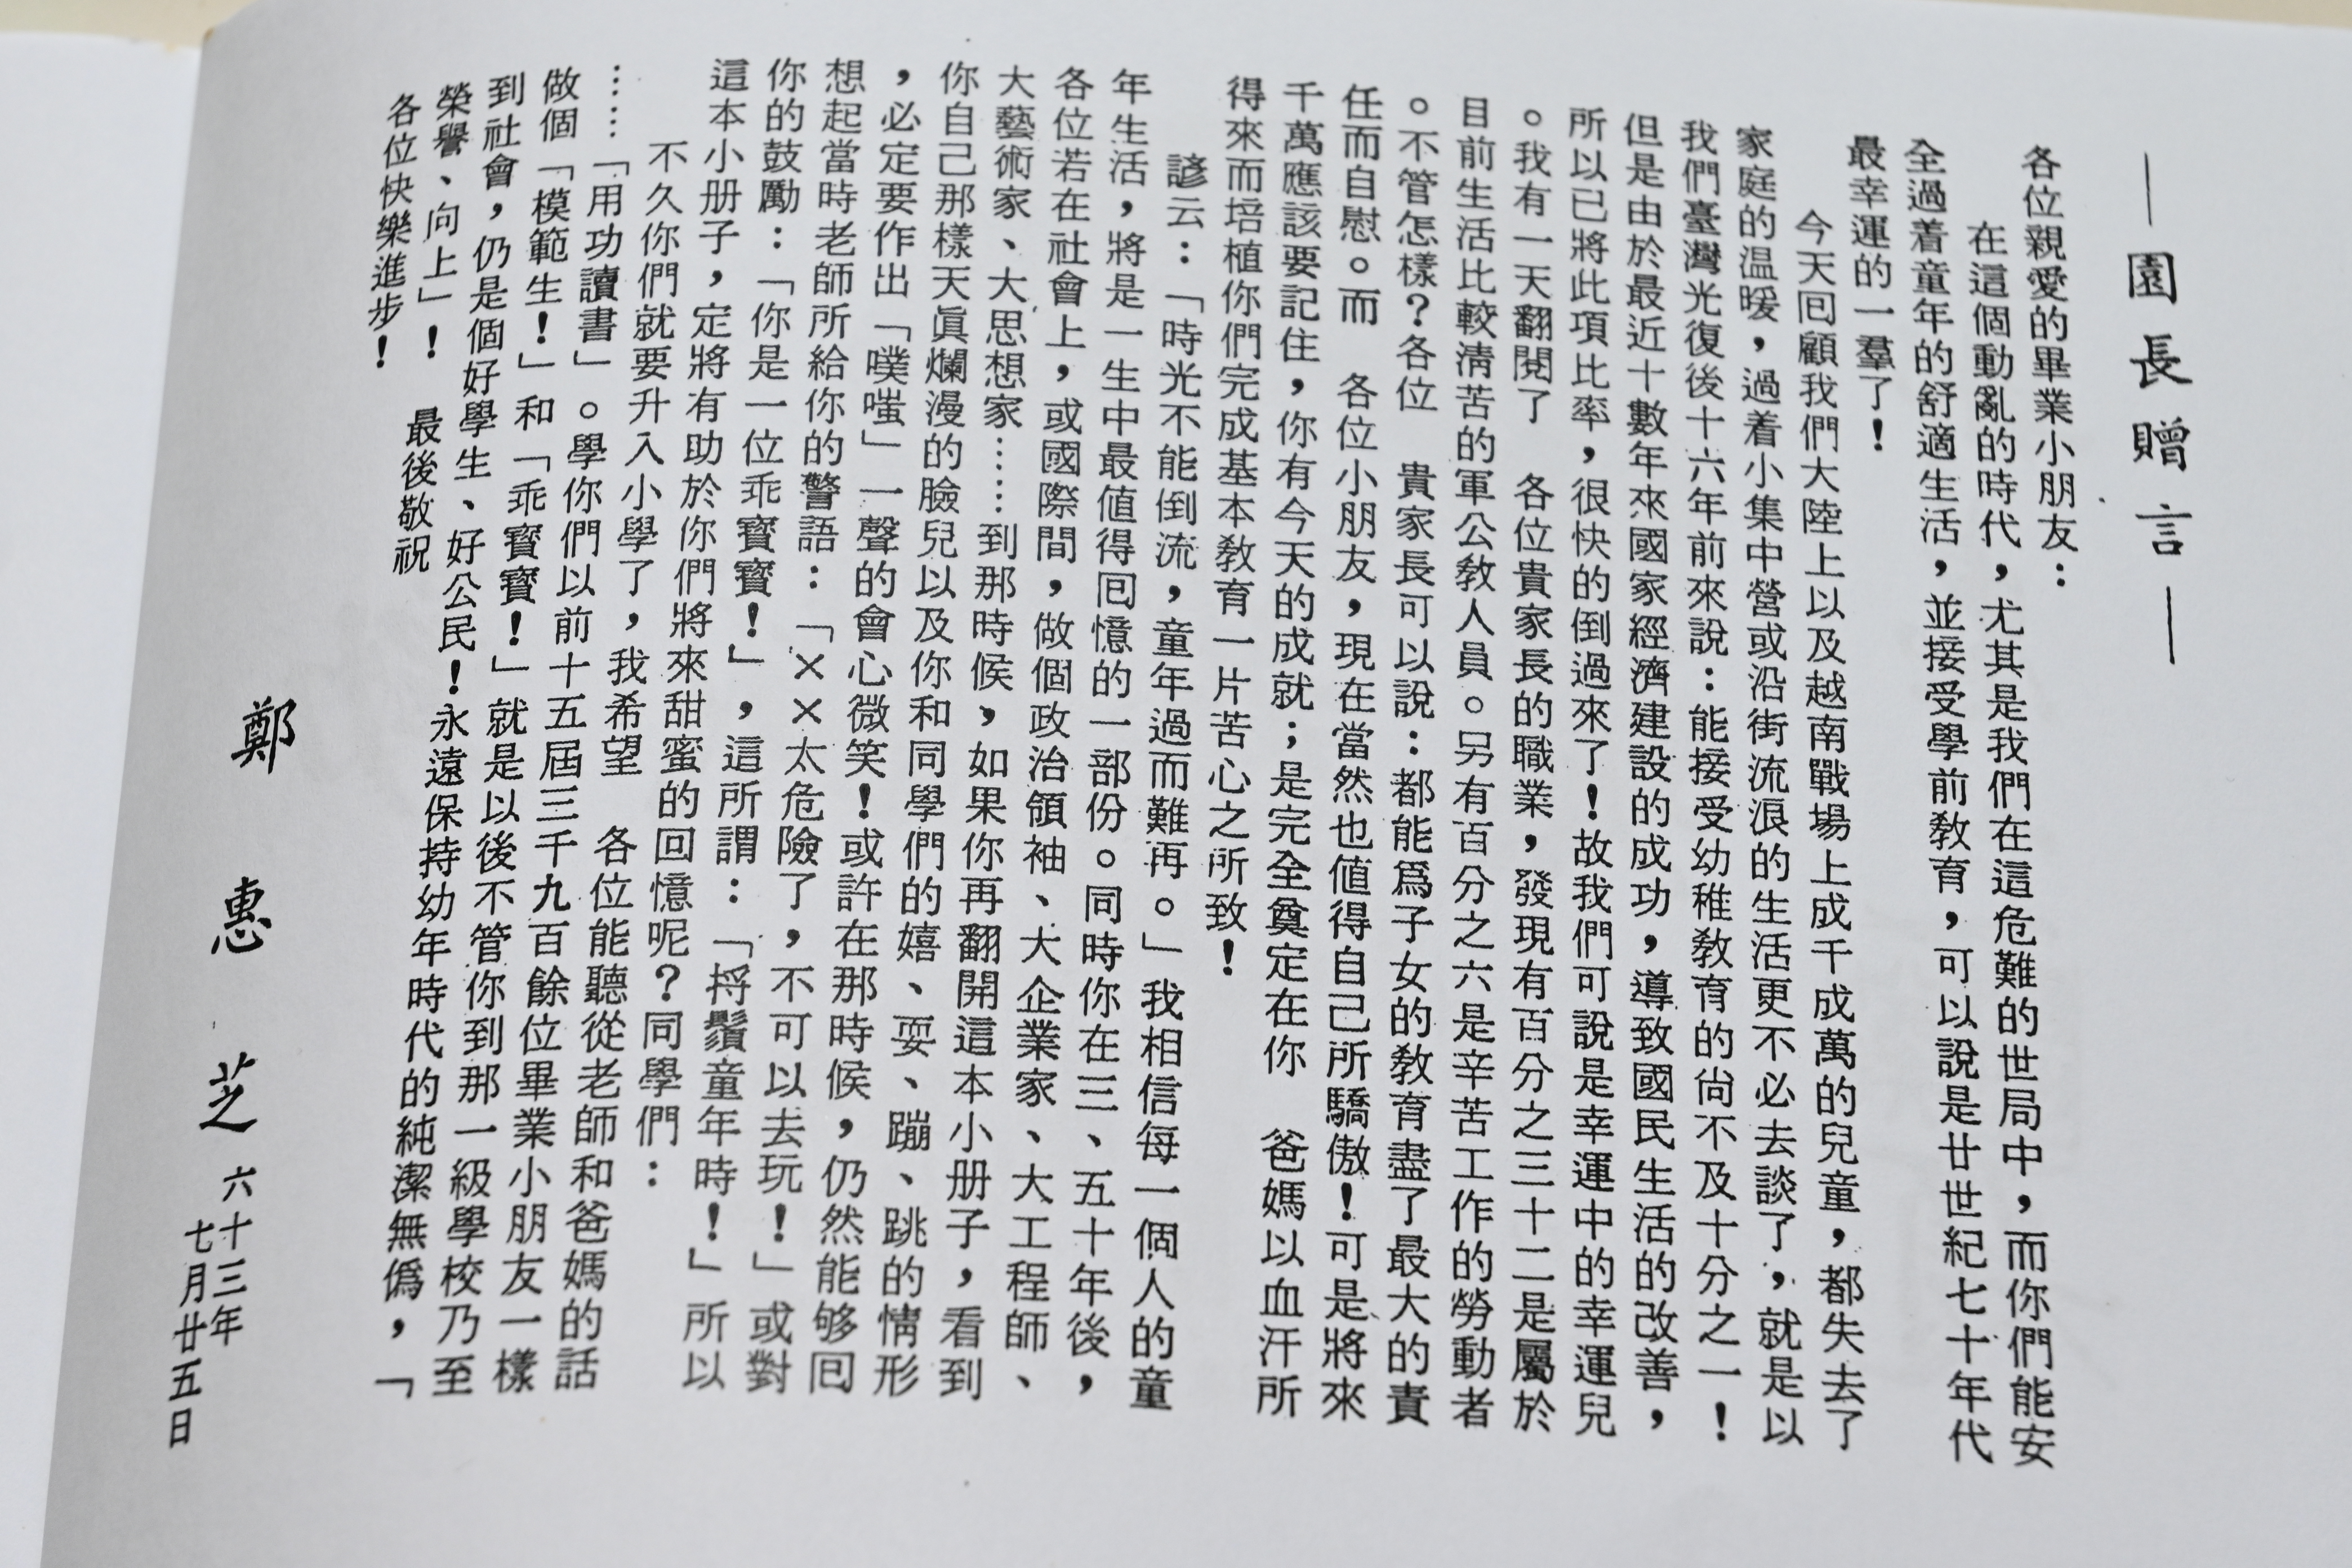 —園長贈言—
各位親愛的畢業小朋友：
在這個動亂的時代，尤其是我們在這危難的世局中，而你們能安
全過着童年的舒適生活，並接受學前教育，可以說是廿世紀七十年代
最幸運的一羣了！
今天回顧我們大陸上以及越南戰場上成千成萬的兒童，都失去了
家庭的溫暖，過着小集中營或沿街流浪的生活更不必去談了，就是以
我們臺灣光復後十六年前來說：能接受幼稚教育的尙不及十分之一！
但是由於最近十數年來國家經濟建設的成功，導致國民生活的改善，
所以已將此項比率，很快的倒過來了！故我們可說是幸運中的幸運兒
。我有一天翻閱了　各位貴家長的職業，發現有百分之三十二是屬於
目前生活比較淸苦的軍公教人員。另有百分之六是辛苦工作的勞動者
。不管怎樣？各位　貴家長可以說：都能爲子女的教育盡了最大的責
任而自慰。而　各位小朋友，現在當然也值得自己所驕傲！可是將來
千萬應該要記住，你有今天的成就；是完全奠定在你　爸媽以血汗所
得來而培植你們完成基本教育一片苦心之所致！
諺云：「時光不能倒流，童年過而難再。」我相信每一個人的童
年生活，將是一生中最值得回憶的一部份。同時你在三、五十年後，
各位若在社會上，或國際間，做個政治領袖、大企業家、大工程師、
大藝術家、大思想家……到那時候，如果你再翻開這本小册子，看到
你自己那樣天眞爛漫的臉兒以及你和同學們的嬉、耍、蹦、跳的情形
，必定要作出「噗嗤」一聲的會心微笑！或許在那時候，仍然能够回
想起當時老師所給你的警語：「××太危險了，不可以去玩！」或對
你的鼓勵：「你是一位乖寶寶！」，這所謂：「捋鬚童年時！」所以
這本小册子，定將有助於你們將來甜蜜的回憶呢？同學們：
不久你們就要升入小學了，我希望　各位能聽從老師和爸媽的話
……「用功讀書」。學你們以前十五屆三千九百餘位畢業小朋友一樣
做個「模範生！」和「乖寶寶！」就是以後不管你到那一級學校乃至
到社會，仍是個好學生、好公民！永遠保持幼年時代的純潔無僞，「
榮譽、向上」！　最後敬祝
各位快樂進步！
鄭惠芝
六十三年
七月廿五日